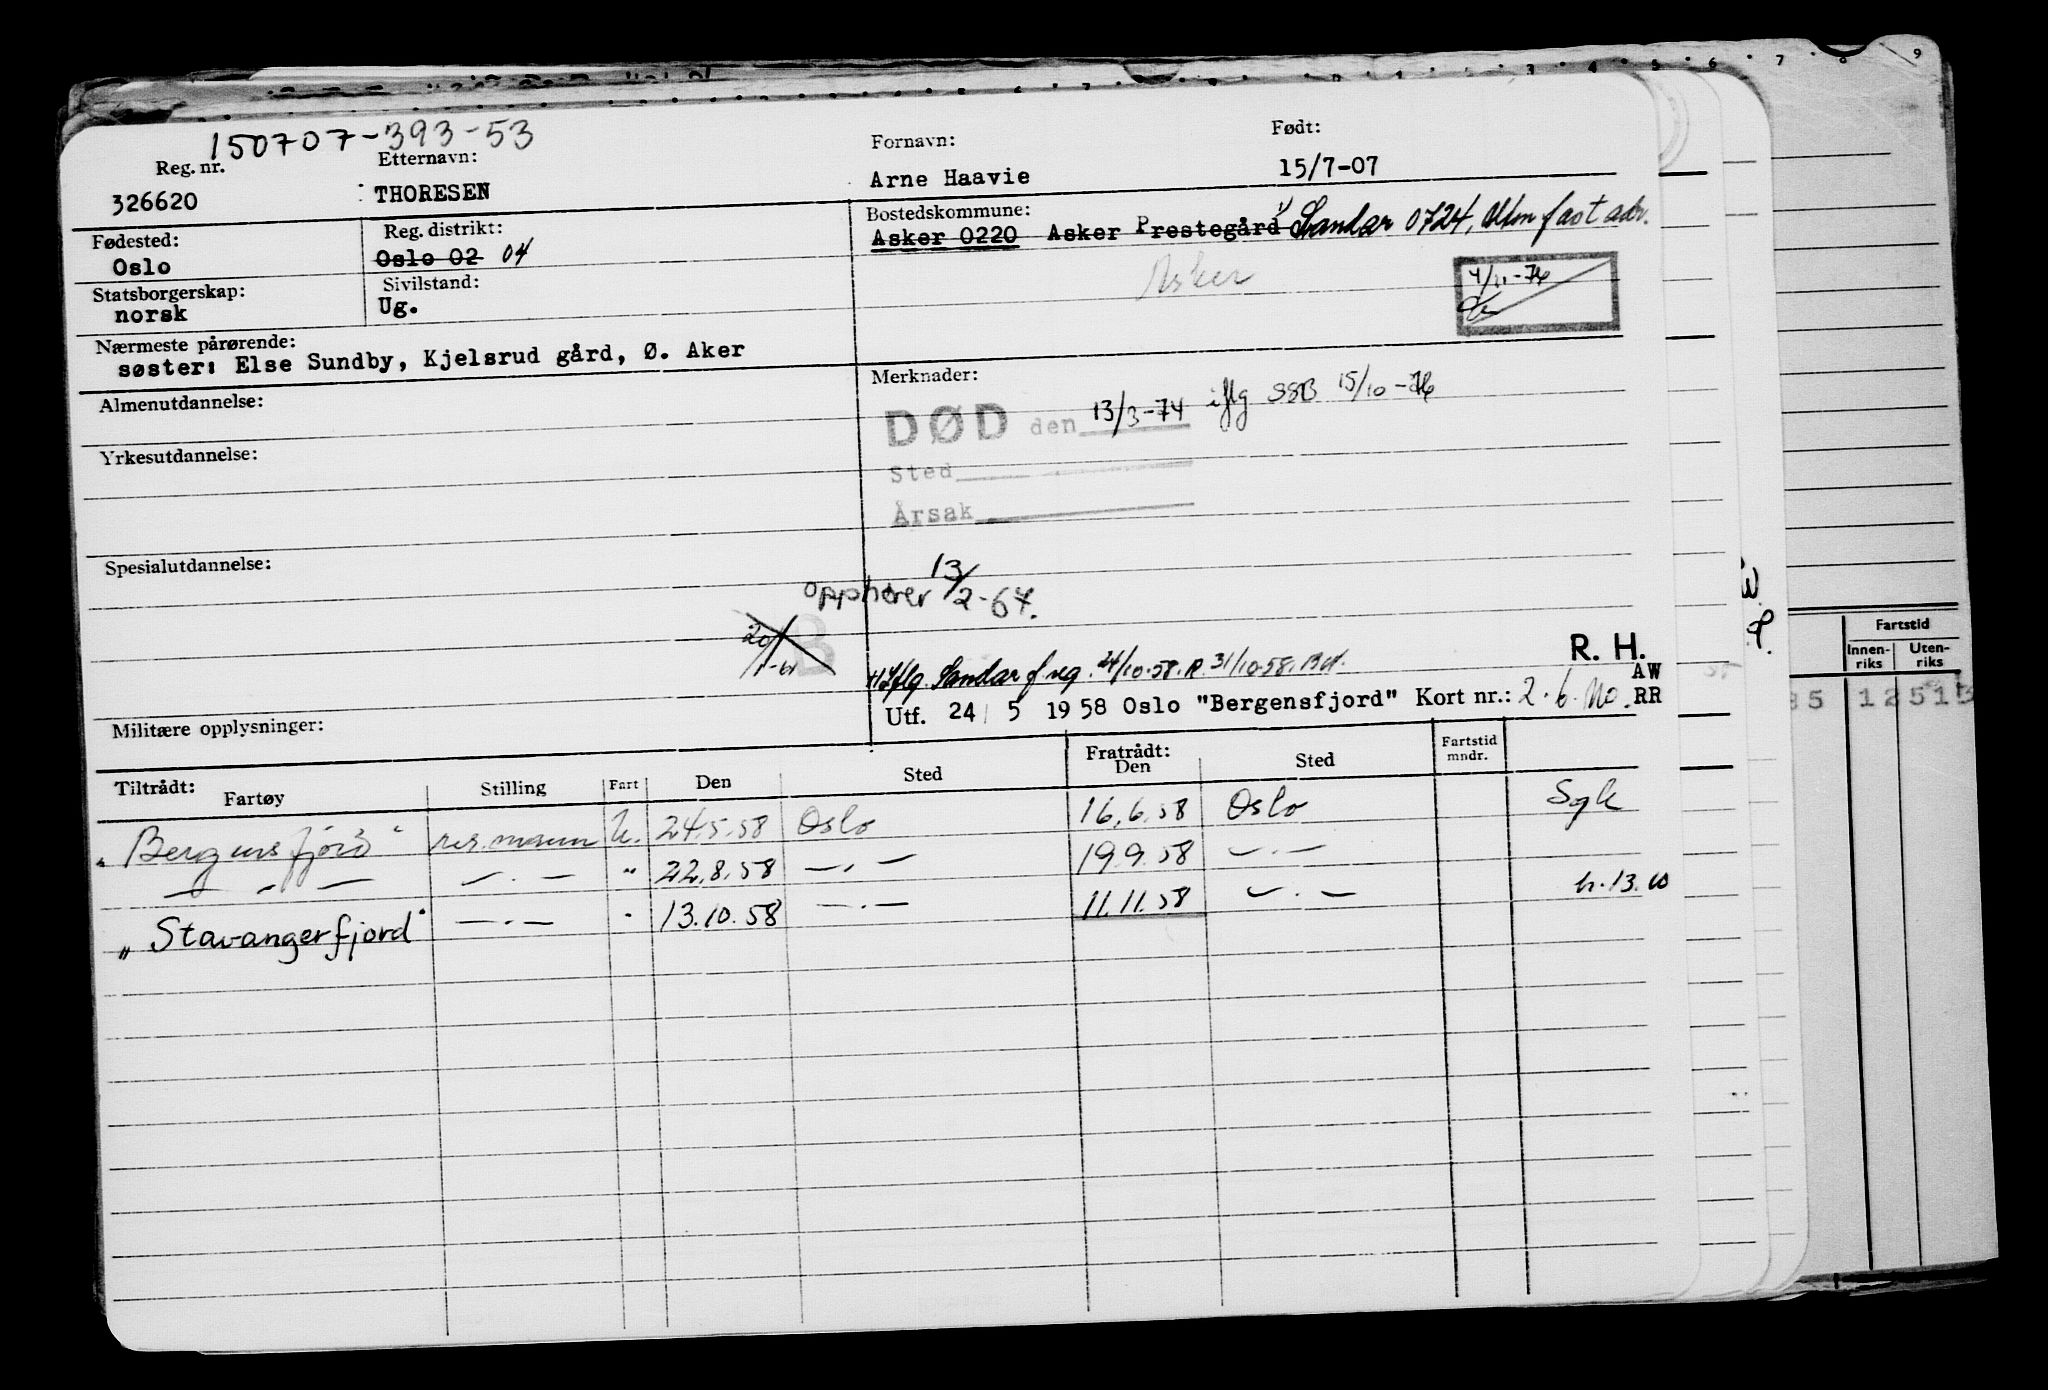 150707-393-53
Reg. nr. Etternavn: Fornavn: Født:
326620 THORESEN Arne Haavie 15/7-07
Fødested: Reg. distrikt: Bostedskommune:
Oslo Oslo 02 04 Asker 0220 Asker Prestegård Sandar 0724, uten fast adr.
Asker
4/11-76
Statsborgerskap: Sivilstand:
norsk Ug.
Nærmeste pårørende:
søster: Else Sundby, Kjelsrud gård, Ø. Aker
Almenutdannelse: Merknader:
DØD den 13/3-74 iflg SSB 15/10-76
Yrkesutdannelse:
Sted
Årsak
Spesialutdannelse:
Opphører 13/2-64.
20/1-61 B
Iflg. Sandar f.reg. 24/10-58. R. 31/10-58.
R. H.
AW
Utf. 24 5 1958 Oslo "Bergensfjord" Kort nr.: 2. RR
Militære opplysninger:
Tiltrådt: Fratrådt:
Fartøy Stilling Fart Den Sted Den Sted Fartstid mndr.
"Bergensfjord" U. 24.5.58 Oslo 16.6.58 Oslo Sgk
— " — —.— " 22.8.58 —.— 19.9.58 —.—
"Stavangerfjord" —.— " 13.10.58 —.— 11.11.58 —.— h.13.60
3 4 5 6 7 8 9
W.
Fartstid
Innen-riks Uten-riks
35 12 513